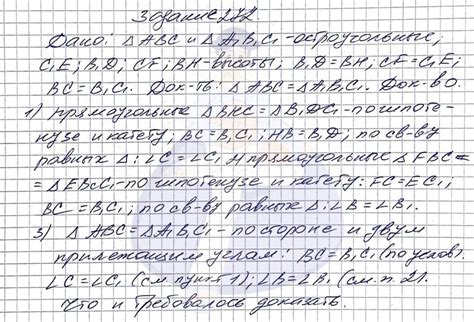 Задание 272.
Дано: △ABC и △A₁B₁C₁-остроугольные,
C₁E; B₁D; CF; BH-высоты; B₁D=BH; CF=C₁E;
BC=B₁C₁. Док-ть: △ABC=△A₁B₁C₁. Док-во.
1) прямоугольные △BHC=△B₁DC₁-по гипоте-
нузе и катету; BC=B₁C₁; HB=B₁D; по св-ву
равных △: ∠C=∠C₁ прямоугольные △FBC=
=△EB₁C₁-по гипотенузе и катету: FC=EC₁;
BC=B₁C₁; по св-ву равных △: ∠B=∠B₁.
3) △ABC=△A₁B₁C₁-по стороне и двум
прилежащим углам: BC=B₁C₁ (по услов).
∠C=∠C₁ (см. пункт 1); ∠B=∠B₁ (см. п. 2).
Что и требовалось доказать.